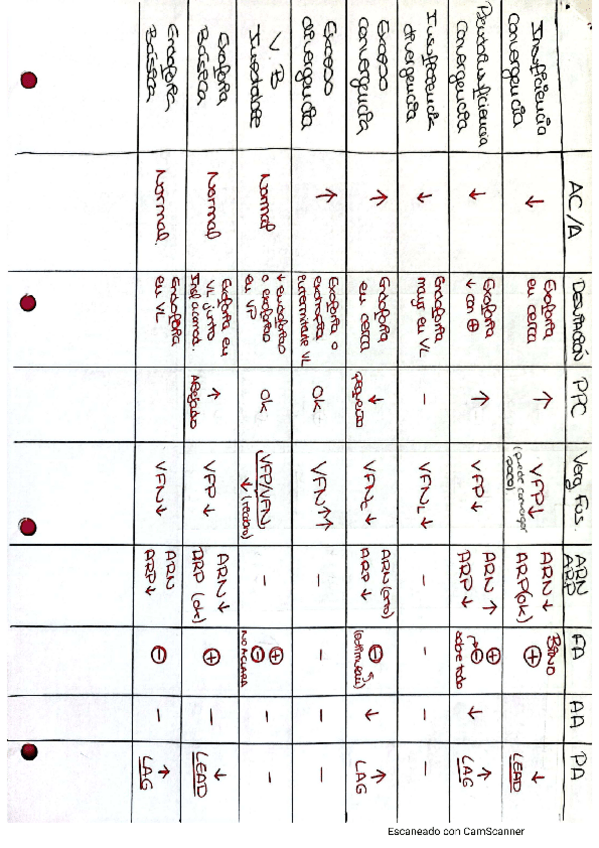 AC/A
DESVIACIÓN
PPC
Verg. Fus.
ARN
ARP
FA
AA
PA
Insuficiencia
Convergencia
↓
Exoforia
en cerca
↑
VFP↓
(puede converger
poco)
ARN ↓
ARP(ok)
BINO
⊕
↓
LEAD
Pseudoinsuficiencia
Convergencia
↓
Exoforia
↓ con ⊕
↑
VFP ↓
ARN ↑
ARP ↓
⊕
⊖
sobre todo
↓
↑
LAG
Insuficiencia
divergencia
↓
Endoforia
mayor en VL
-
VFN_L ↓
-
-
-
-
Exceso
convergencia
↑
Endoforia
en cerca
↓
pequeño
VFN_C ↓
ARN
ARP ↓
⊖
↓
↑
LAG
Exceso
divergencia
↑
Exoforia o
exotropia
intermitente VL
OK
VFN ↑↑
-
-
-
-
V. B
Inestable
Normal
↓ endoforias
o exoforias
en VP
OK
VFP/VFN
↓
-
⊕
⊖
NO ACLARA
-
-
Exoforia
Básica
Normal
Exoforia en
VL junto
Insf. acomod.
↑
Alejado
VFP ↓
ARN ↓
ARP (ok)
⊕
-
↓
LEAD
Endoforia
Básica
Normal.
Endoforia
en VL
VFN ↓
ARN
ARP ↓
⊖
-
↑
LAG
Escaneado con CamScanner